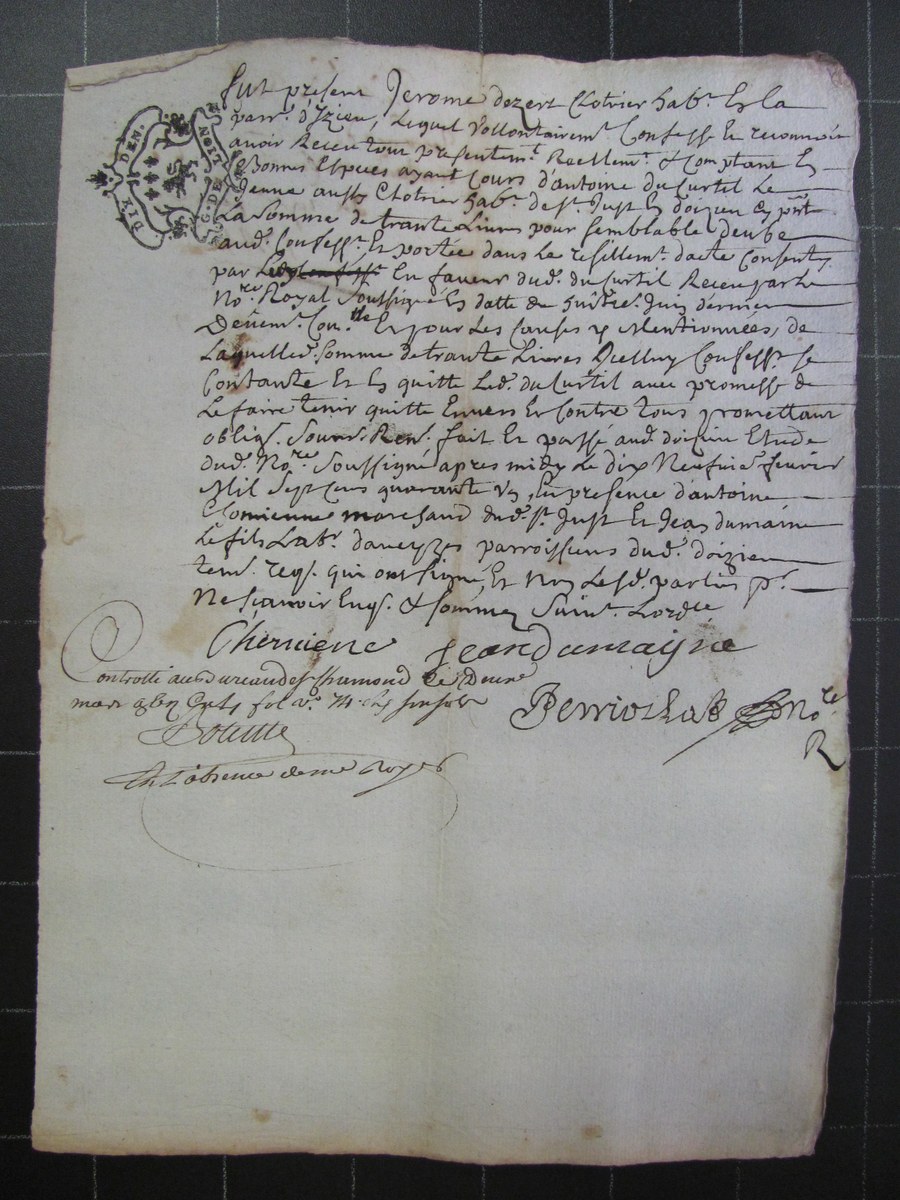 fut present Jerome dozert Clotrier hab.t En la
parr.e d'Izieu, Lequel Vollontairem.t Confesse Et reconnois
avoir Receu tout presentem.t Reellem.t & Comptant En
Bonnes Especes ayant Cours d'antoine du Curtil Le
Jeune aussy Clotrier hab.t de S.t Just En doizieu Cy p.nt
La Somme de trante Livres pour Semblable deube
aud. Confess.t Et portée dans Le resillem.t dacte Consenty
par En faveur dud. du Curtil Receu par Le
No.re Royal Soussigné En datte du huitie. Juin dernier
Deuem.t Con.lle Et pour Les Causes y Mentionnées, de
Laquelle d. Somme de trante Livres Confess.t Se
Contante Et En quitte Led. du Curtil avec promesse de
Le faire tenir quitte Envers Et Contre tous promettant
oblig. Soum. Ren. fait Et passé aud. doizieu Etude
dud. No.re Soussigné apres midy Le dix Neufvie. fevrier
Mil Sept Cens quarante Un, En presence d'antoine
marchand dud. S.t Just Et Jean dumaine
Le fils Lab.r daveyzes parroissiens dud. doizieu
tem. req. qui ont signé, Et Non Les d. parties p.r
Ne sçavoir Enq. & sommés Suiv.t Lord.ce
Jean Dumayne
Controllé au Bureau de S.t Chamond Le Deux
mars fol v.o 74
No.re
R
En L'absence de me Royer
DEN.
NOIT
G. DE